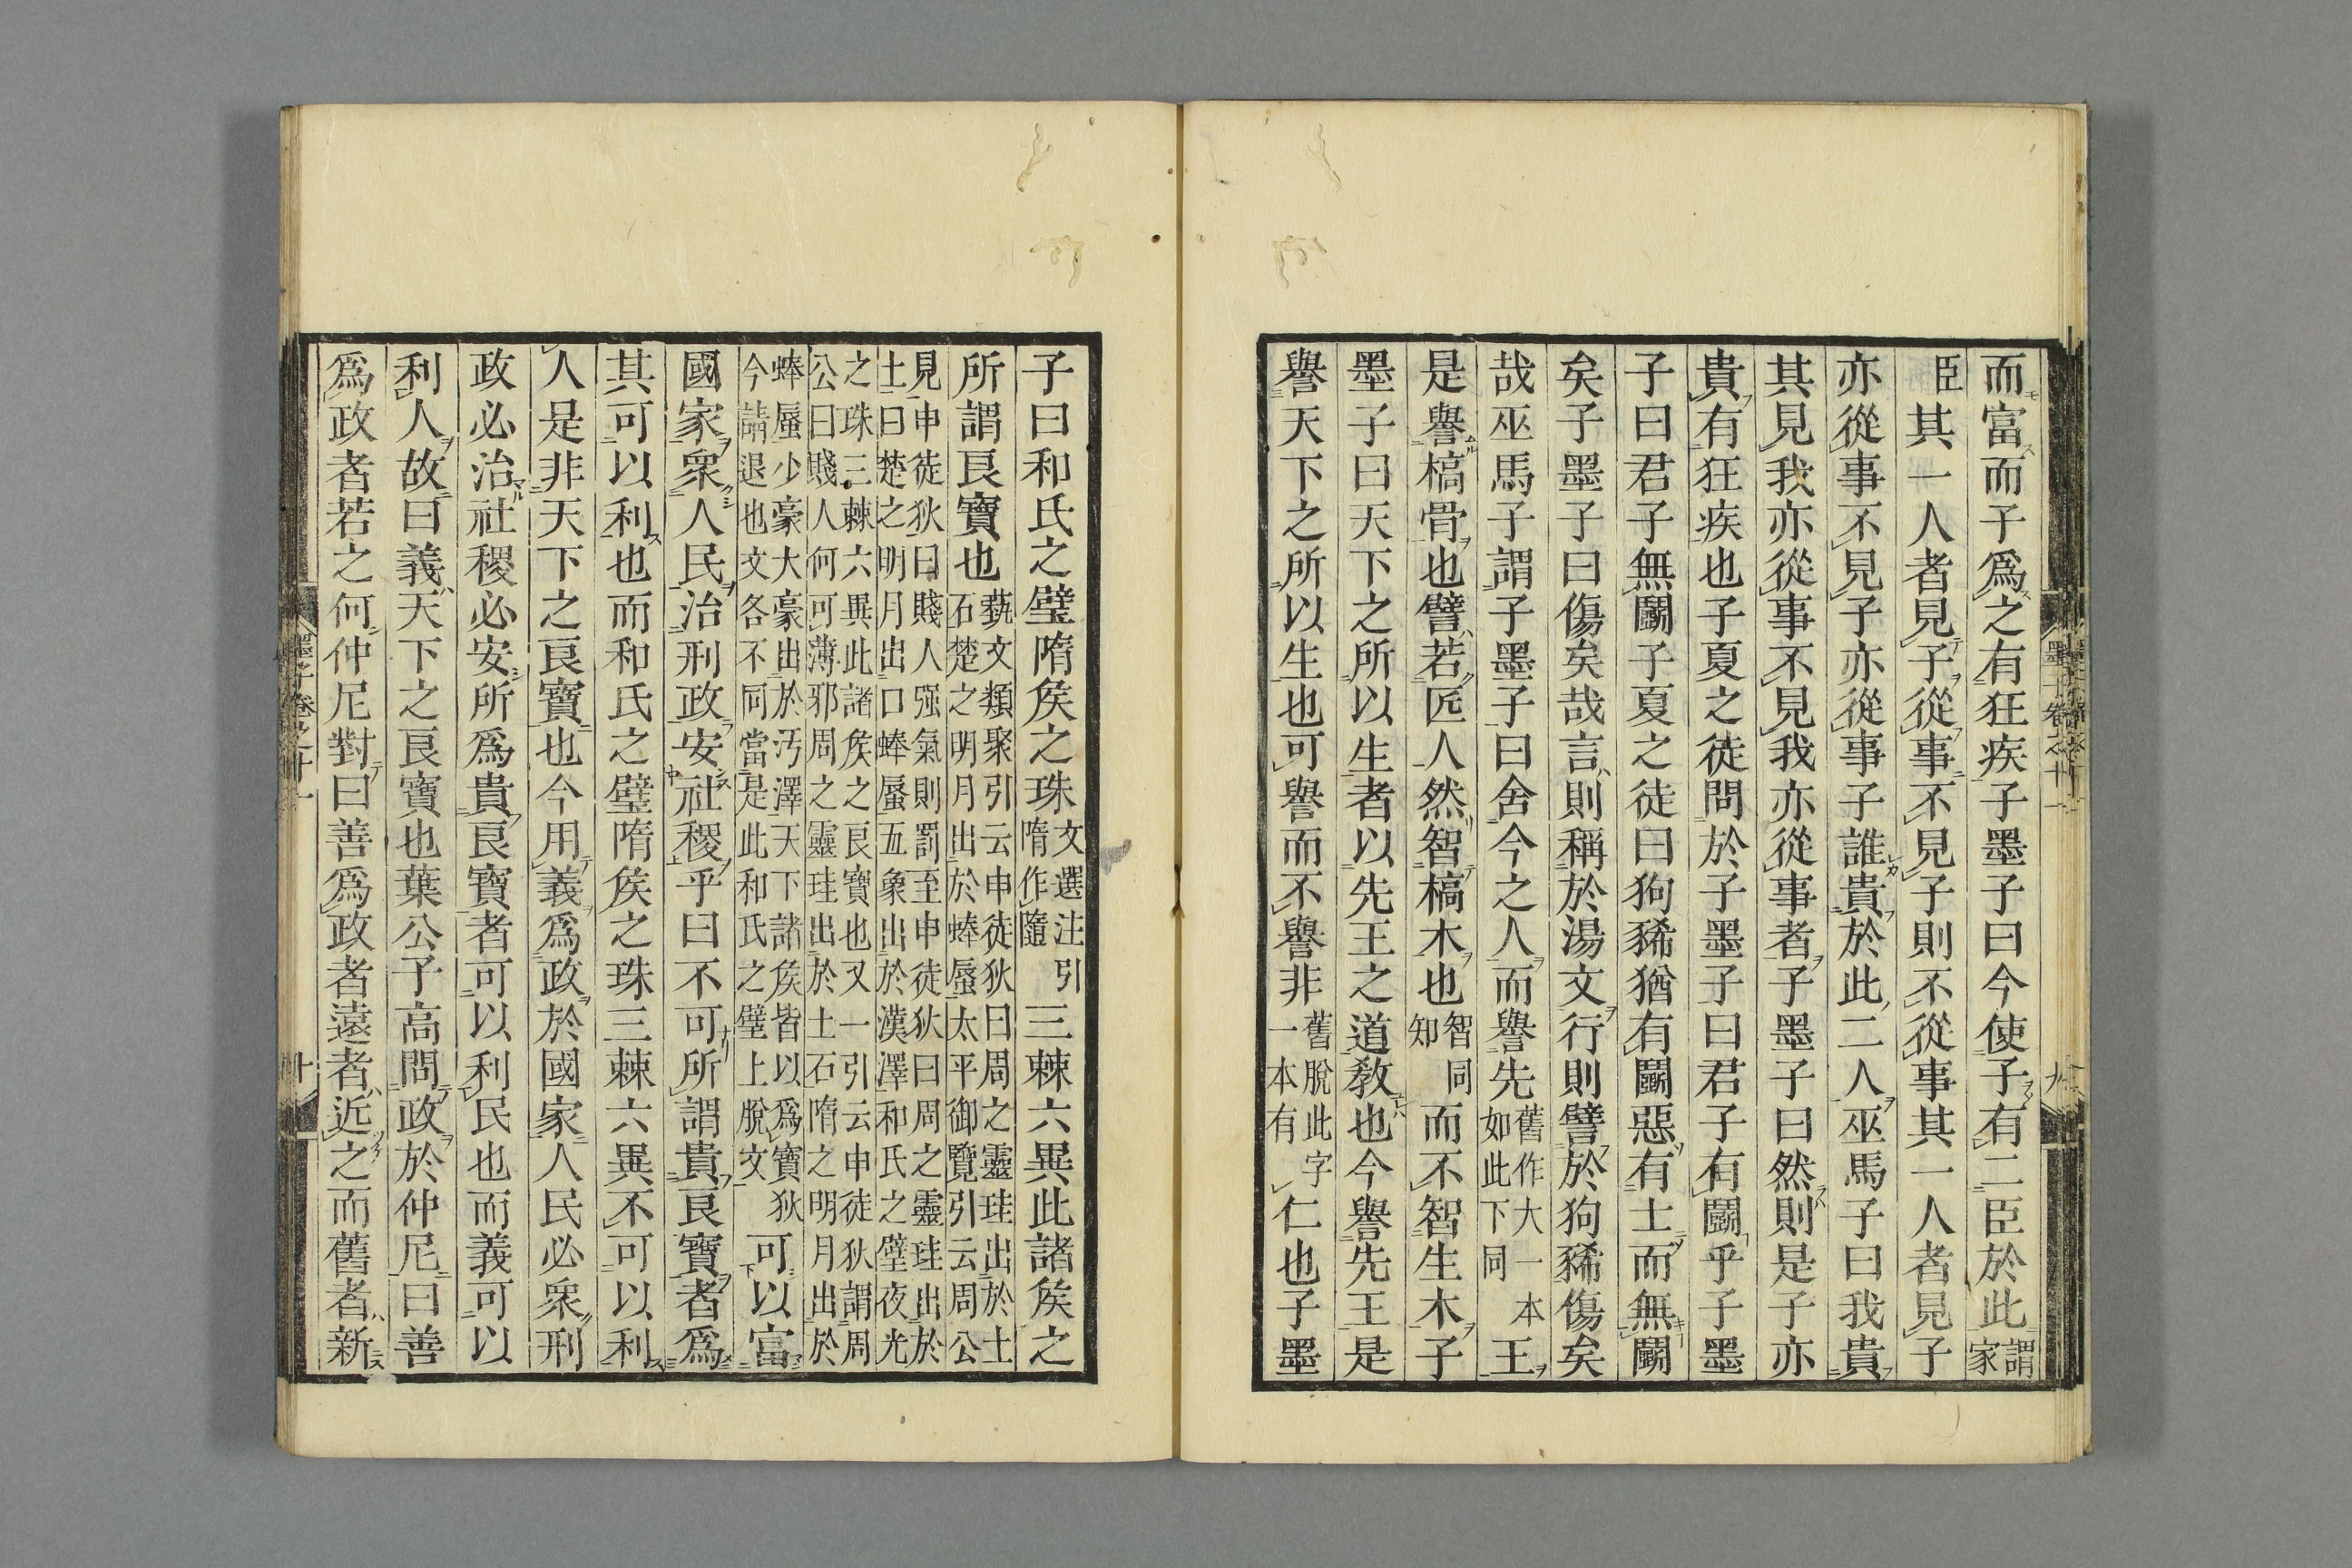 而富而子爲之有狂疾子墨子曰今使子有二臣於此謂家
臣其一人者見子從事不見子則不從事其一人者見子
亦從事不見子亦從事子誰貴於此二人巫馬子曰我貴
其見我亦從事不見我亦從事者子墨子曰然則是子亦
貴有狂疾也子夏之徒問於子墨子曰君子有鬭乎子墨
子曰君子無鬭子夏之徒曰狗豨猶有鬭惡有士而無鬭
矣子墨子曰傷矣哉言則稱於湯文行則譬於狗豨傷矣
哉巫馬子謂子墨子曰舍今之人而譽先舊作大一本如此下同王
是譽槁骨也譬若匠人然智槁木也智同知而不智生木子
墨子曰天下之所以生者以先王之道教也今譽先王是
譽天下之所以生也可譽而不譽非舊脫此字一本有仁也子墨
墨子卷之十一
九
子曰和氏之璧隋矦之珠文選注引隋作隨三棘六異此諸矦之
所謂良寶也藝文類聚引云申徒狄曰周之靈珪出於土石楚之明月出於蜯蜃太平御覽引云周公
見申徒狄曰賤人强氣則罰至申徒狄曰周之靈珪出於土曰楚之明月出口蜯蜃五象出於漢澤和氏之璧夜光
之珠三棘六異此諸矦之良寶也又一引云申徒狄謂周公曰賤人何可薄邪周之靈珪出於土石隋之明月出於
蜯蜃少豪大豪出於汚澤天下諸矦皆以爲寶狄今請退也文各不同當是此和氏之璧上脫文可以富
國家衆人民治刑政安社稷乎曰不可所謂貴良寶者爲
其可以利也而和氏之璧隋矦之珠三棘六異不可以利
人是非天下之良寶也今用義爲政於國家人民必衆刑
政必治社稷必安所爲貴良寶者可以利民也而義可以
利人故曰義天下之良寶也葉公子高問政於仲尼曰善
爲政者若之何仲尼對曰善爲政者遠者近之而舊者新
墨子卷之十一
十